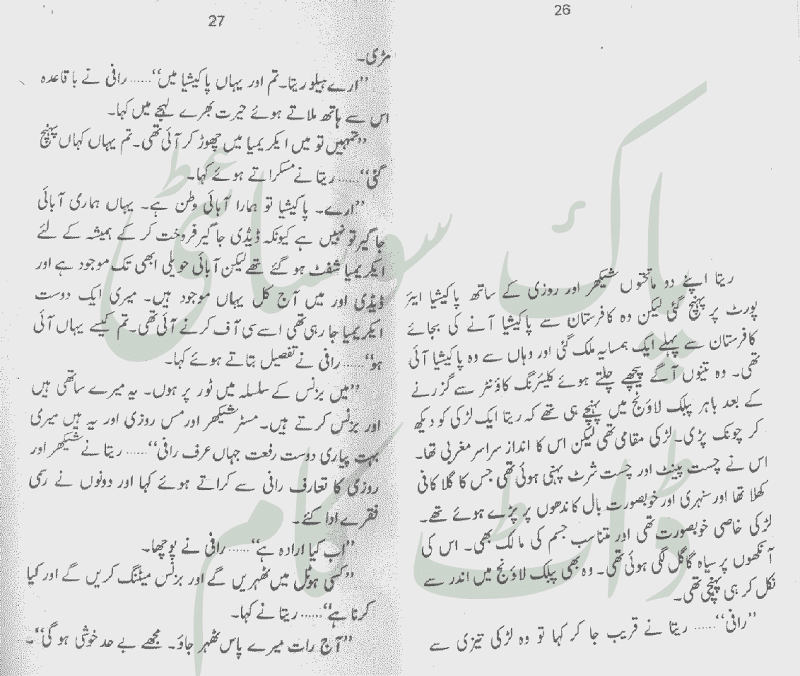 26
ریتا اپنے دو ماتحتوں شیکھر اور روزی کے ساتھ پاکیشیا ایئر
پورٹ پر پہنچ گئی لیکن وہ کافرستان سے پاکیشیا آنے کی بجائے
کافرستان سے پہلے ایک ہمسایہ ملک گئی اور وہاں سے وہ پاکیشیا آئی
تھی۔ وہ تینوں آگے پیچھے چلتے ہوئے کلیئرنگ کاؤنٹر سے گزرنے
کے بعد باہر پبلک لاؤنج میں پہنچے ہی تھے کہ ریتا ایک لڑکی کو دیکھ
کر چونک پڑی۔ لڑکی مقامی تھی لیکن اس کا انداز سراسر مغربی تھا۔
اس نے چست پینٹ اور چست شرٹ پہنی ہوئی تھی جس کا گلا کافی
کھلا تھا اور سنہری اور خوبصورت بال کاندھوں پر پڑے ہوئے تھے۔
لڑکی خاصی خوبصورت تھی اور متناسب جسم کی مالک بھی۔ اس کی
آنکھوں پر سیاہ گاگل لگی ہوئی تھی۔ وہ بھی پبلک لاؤنج میں اندر سے
نکل کر ہی پہنچی تھی۔
”رافی“...... ریتا نے قریب جا کر کہا تو وہ لڑکی تیزی سے
27
مڑی۔
”ارے ہیلو ریتا۔ تم اور یہاں پاکیشیا میں“...... رافی نے باقاعدہ
اس سے ہاتھ ملاتے ہوئے حیرت بھرے لہجے میں کہا۔
”تمہیں تو میں ایکریمیا میں چھوڑ کر آئی تھی۔ تم یہاں کہاں پہنچ
گئی“...... ریتا نے مسکراتے ہوئے کہا۔
”ارے۔ پاکیشیا تو ہمارا آبائی وطن ہے۔ یہاں ہماری آبائی
جاگیر تو نہیں ہے کیونکہ ڈیڈی جاگیر فروخت کر کے ہمیشہ کے لئے
ایکریمیا شفٹ ہو گئے تھے لیکن آبائی حویلی ابھی تک موجود ہے اور
ڈیڈی اور میں آج کل یہاں موجود ہیں۔ میری ایک دوست
ایکریمیا جا رہی تھی اسے سی آف کرنے آئی تھی۔ تم کیسے یہاں آئی
ہو“...... رافی نے تفصیل بتاتے ہوئے کہا۔
”میں بزنس کے سلسلہ میں ٹور پر ہوں۔ یہ میرے ساتھی ہیں
اور بزنس کرتے ہیں۔ مسٹر شیکھر اور مس روزی اور یہ ہیں میری
بہت پیاری دوست رفعت جہاں عرف رافی“...... ریتا نے شیکھر اور
روزی کا تعارف رافی سے کراتے ہوئے کہا اور دونوں نے رسمی
فقرے ادا کئے۔
”اب کیا ارادہ ہے“...... رافی نے پوچھا۔
”کسی ہوٹل میں ٹھہریں گے اور بزنس میٹنگ کریں گے اور کیا
کرنا ہے“...... ریتا نے کہا۔
”آج رات میرے پاس ٹھہر جاؤ۔ مجھے بے حد خوشی ہو گی“۔
پاک سوسائٹی
ڈاٹ کام